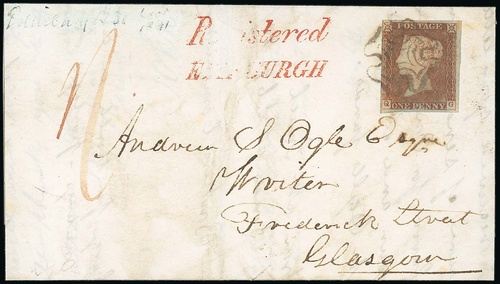 Registered
EDINBURGH
POSTAGE
ONE PENNY
Andrew S Ogle Esqre
Writer
Frederick Street
Glasgow